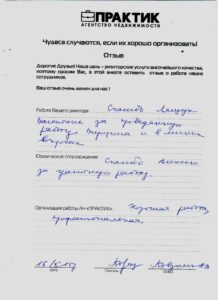 ПРАКТИК
АГЕНТСТВО НЕДВИЖИМОСТИ
Чудеса случаются, если их хорошо организовать!
Отзыв
Дорогие Друзья! Наша цель – риэлторские услуги высочайшего качества,
поэтому просим Вас, в этой анкете оставить отзыв о работе наших
сотрудников.
Ваш отзыв очень важен для нас!
Работа Вашего риелтора: Спасибо
Валентине за проведенную
работу.
Юридическое сопровождение: Спасибо Алексею
за грамотную работу.
Организация работы АН «ПРАКТИК»: Хорошая работа,
профессиональная
Дата
Подпись
ФИО